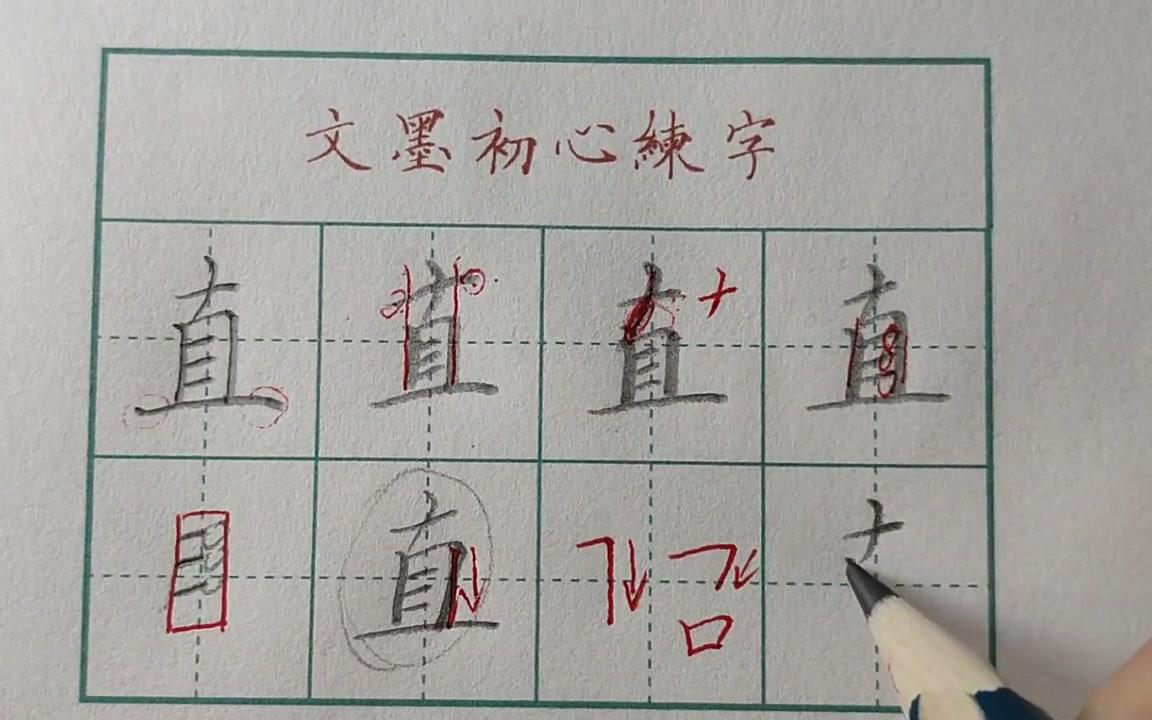 文墨初心練字
直 直 直 直
直 口